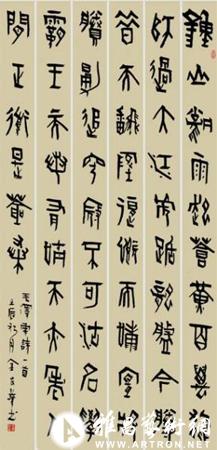 鍾山風雨起蒼黄百萬雄
師過大江虎踞龍盤今勝
昔天翻地覆慨而慷宜將
賸勇追窮寇不可沽名學
霸王天若有情天亦老人
間正道是滄桑
毛澤東詩一首
雅昌藝術網
WWW.ARTRON.NET